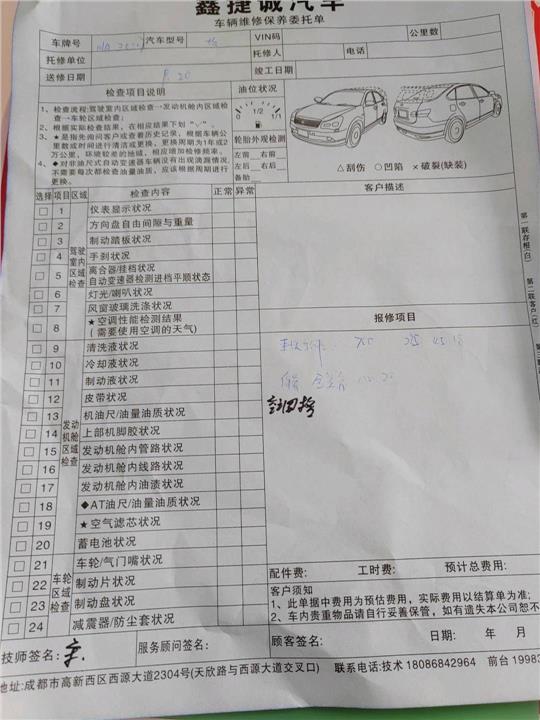 鑫捷诚汽车
车辆维修保养委托单
车牌号 汽车型号 VIN码 公里数
托修单位 托修人 电话
送修日期 竣工日期
检查项目说明
1、检查流程:驾驶室内区域检查一发动机舱内区域检
查一车轮区域检查;
2、根据实际检查结果,在相应结果下划“√”。
3、★是指先询问客户或查看历史记录,根据车辆公
里数或时间进行清洁或更换,更换周期为1年或2
万公里,环境较差的地域,相应增加检修频率。
4、◆对非油尺式自动变速器车辆没有出现滴漏情况,
不需要每次都检查油量油质,应该根据周期进行
更换。
油位状况
0 1/2 1/1
轮胎外观检测
左前 右前
左后 右后
备胎
△刮伤 ○凹陷 ×破裂(缺装)
选择 项目 区域 检查内容 正常 异常
驾驶室内区域检查
1 仪表显示状况
2 方向盘自由间隙与重量
3 制动踏板状况
4 手刹状况
5 离合器/挂档状况
自动变速器检测进档平顺状态
6 灯光/喇叭状况
7 风窗玻璃洗涤状况
8 ★空调性能检测结果
(需要使用空调的天气)
发动机舱区域检查
9 清洗液状况
10 冷却液状况
11 制动液状况
12 皮带状况
13 机油尺/油量油质状况
14 上部机脚胶状况
15 发动机舱内管路状况
16 发动机舱内线路状况
17 发动机舱内油渍状况
18 ◆AT油尺/油量油质状况
19 ★空气滤芯状况
20 蓄电池状况
车轮区域检查
21 车轮/气门嘴状况
22 制动片状况
23 制动盘状况
24 减震器/防尘套状况
客户描述
报修项目
配件费: 工时费: 预计总费用:
客户须知
1、此单据中费用为预估费用,实际费用以结算单为准;
2、车内贵重物品请自行妥善保管,如有遗失本公司恕不
技师签名: 服务顾问签名: 顾客签名: 日期: 年 月
地址:成都市高新西区西源大道2304号(天欣路与西源大道交叉口) 联系电话:技术 18086842964 前台 19983
第一联存根(白)
第二联客户(红)